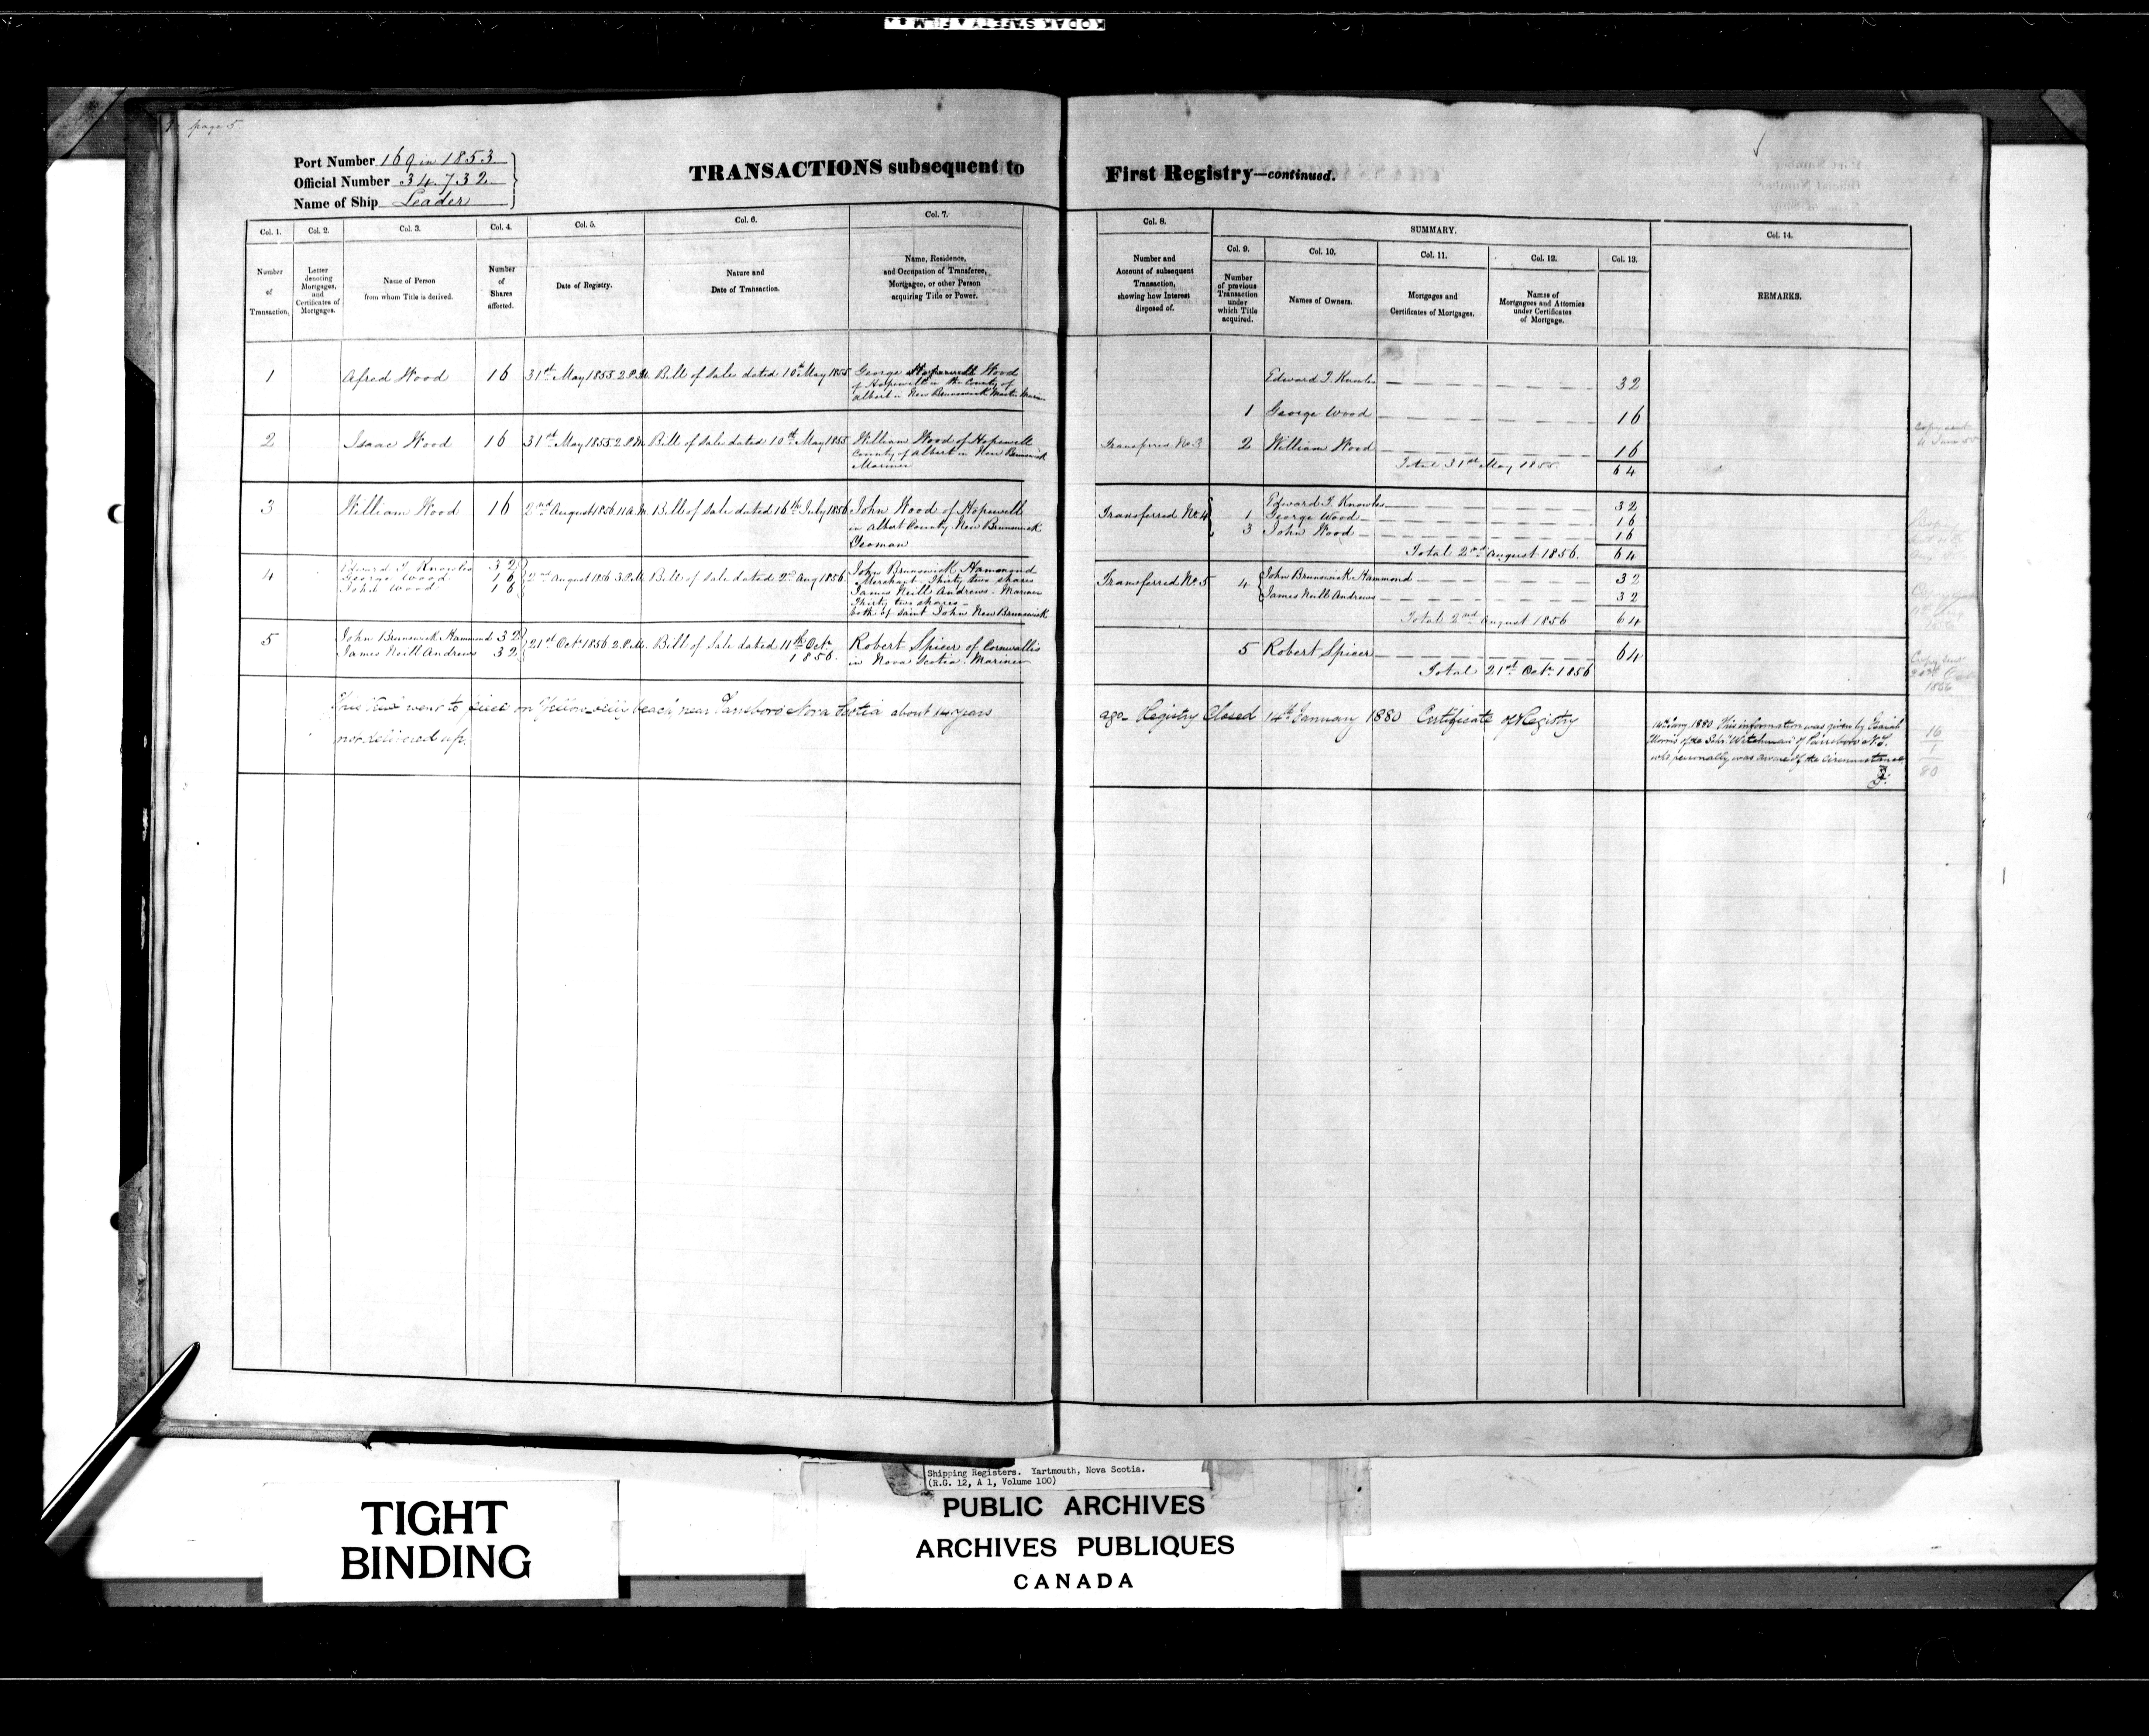 KODAK SAFETY FILM
page 5
Port Number 169 in 1853
Official Number 34.732
Name of Ship Leader
TRANSACTIONS subsequent to
First Registry—continued.
Col. 1.
Col. 2.
Col. 3.
Col. 4.
Col. 5.
Col. 6.
Col. 7.
Number
of
Transaction.
Letter
denoting
Mortgages,
and
Certificates of
Mortgages.
Name of Person
from whom Title is derived.
Number
of
Shares
affected.
Date of Registry.
Nature and
Date of Transaction.
Name, Residence,
and Occupation of Transferee,
Mortgagee, or other Person
acquiring Title or Power.
Col. 8.
SUMMARY.
Col. 14.
Col. 9.
Col. 10.
Col. 11.
Col. 12.
Col. 13.
Number and
Account of subsequent
Transaction,
showing how Interest
disposed of.
Number
of previous
Transaction
under
which Title
acquired.
Names of Owners.
Mortgages and
Certificates of Mortgages.
Names of
Mortgagees and Attornies
under Certificates
of Mortgage.
REMARKS.
1 Afred Wood 16 31st May 1855 2 P.M. Bill of Sale dated 10th May 1855 George Wood
of Hopewell in the County of
Albert in New Brunswick Master Mariner
2 Isaac Wood 16 31st May 1855 2 P.M. Bill of Sale dated 10th May 1855 William Wood of Hopewell
County of Albert in New Brunswick
Mariner
3 William Wood 16 2nd August 1856 11 A.M. Bill of Sale dated 16th July 1856 John Wood of Hopewell
in Albert County New Brunswick
Yeoman
4 Edward T. Knowles 32
George Wood 16
John Wood 16
2nd August 1856 3 P.M. Bill of Sale dated 2nd Aug 1856
John Brunswick Hammond
Merchant - Thirty two shares
James Neill Andrews - Mariner
Thirty two shares -
both of Saint John New Brunswick
5 John Brunswick Hammond 32
James Neill Andrews 32
21st Oct. 1856 2 P.M. Bill of Sale dated 11th Oct.
1856.
Robert Spicer of Cornwallis
in Nova Scotia. Mariner
Edward T. Knowles 32
1 George Wood 16
Transferred No. 3 2 William Wood 16
Total 31st May 1855 64
Transferred No. 4
Edward T. Knowles 32
1 George Wood 16
3 John Wood 16
Total 2nd August 1856. 64
Transferred No. 5 4 John Brunswick Hammond 32
James Neill Andrews 32
Total 2nd August 1856 64
5 Robert Spicer 64
Total 21st Oct. 1856
went to on beach near Parrsboro Nova Scotia about 14 years
ago- Registry Closed 14th January 1880 Certificate of Registry
not delivered up.
14 Jany. 1880 This information was given by Isaiah
Morris of the Schr. of Parrsboro N.S.
who personally was aware of the circumstance
Copy sent
16
1
80
TIGHT
BINDING
Shipping Registers. Yartmouth, Nova Scotia.
(R.G. 12, A 1, Volume 100)
PUBLIC ARCHIVES
ARCHIVES PUBLIQUES
CANADA